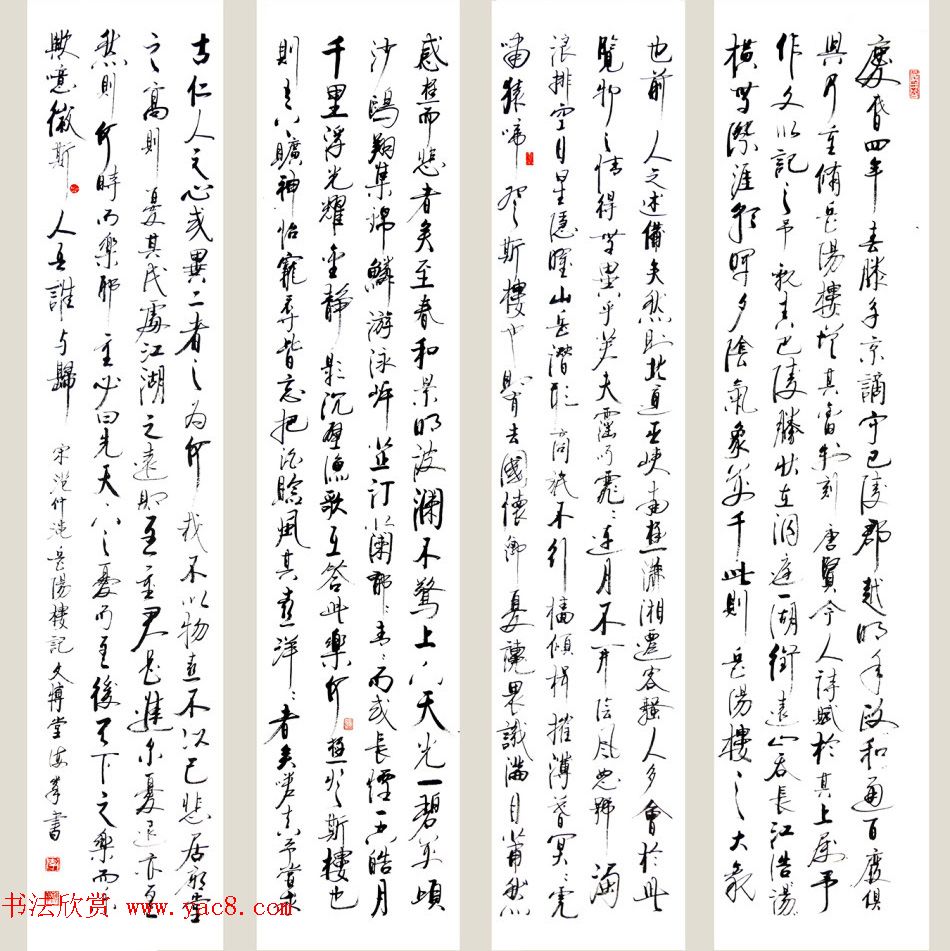 慶曆四年春滕子京謫守巴陵郡越明年政和通百廢俱
興乃重脩岳陽樓增其舊制刻唐賢今人詩賦於其上屬予
作文以記之予觀夫巴陵勝狀在洞庭一湖銜遠山吞長江浩湯
橫無際涯朝暉夕陰氣象萬千此則岳陽樓之大觀
也前人之述備矣然則北通巫峽南極瀟湘遷客騷人多會於此
覽物之情得無異乎若夫霪雨霏霏連月不開陰風怒號濁
浪排空日星隱曜山岳潛形商旅不行檣傾楫摧薄暮冥冥虎
嘯猿啼登斯樓也則有去國懷鄉憂讒畏譏滿目蕭然
感極而悲者矣至春和景明波瀾不驚上下天光一碧萬頃
沙鷗翔集錦鱗游泳岸芷汀蘭郁郁青青而或長煙一空皓月
千里浮光耀金靜影沉璧漁歌互答此樂何極登斯樓也
則有心曠神怡寵辱皆忘把酒臨風其喜洋洋者矣嗟夫予嘗求
古仁人之心或異二者之為何哉不以物喜不以己悲居廟堂
之高則憂其民處江湖之遠則憂其君是進亦憂退亦憂
然則何時而樂耶其必曰先天下之憂而憂後天下之樂而樂
歟噫微斯人吾誰与歸
宋范仲淹岳陽樓記文博堂海峯書
书法欣赏 www.yac8.com